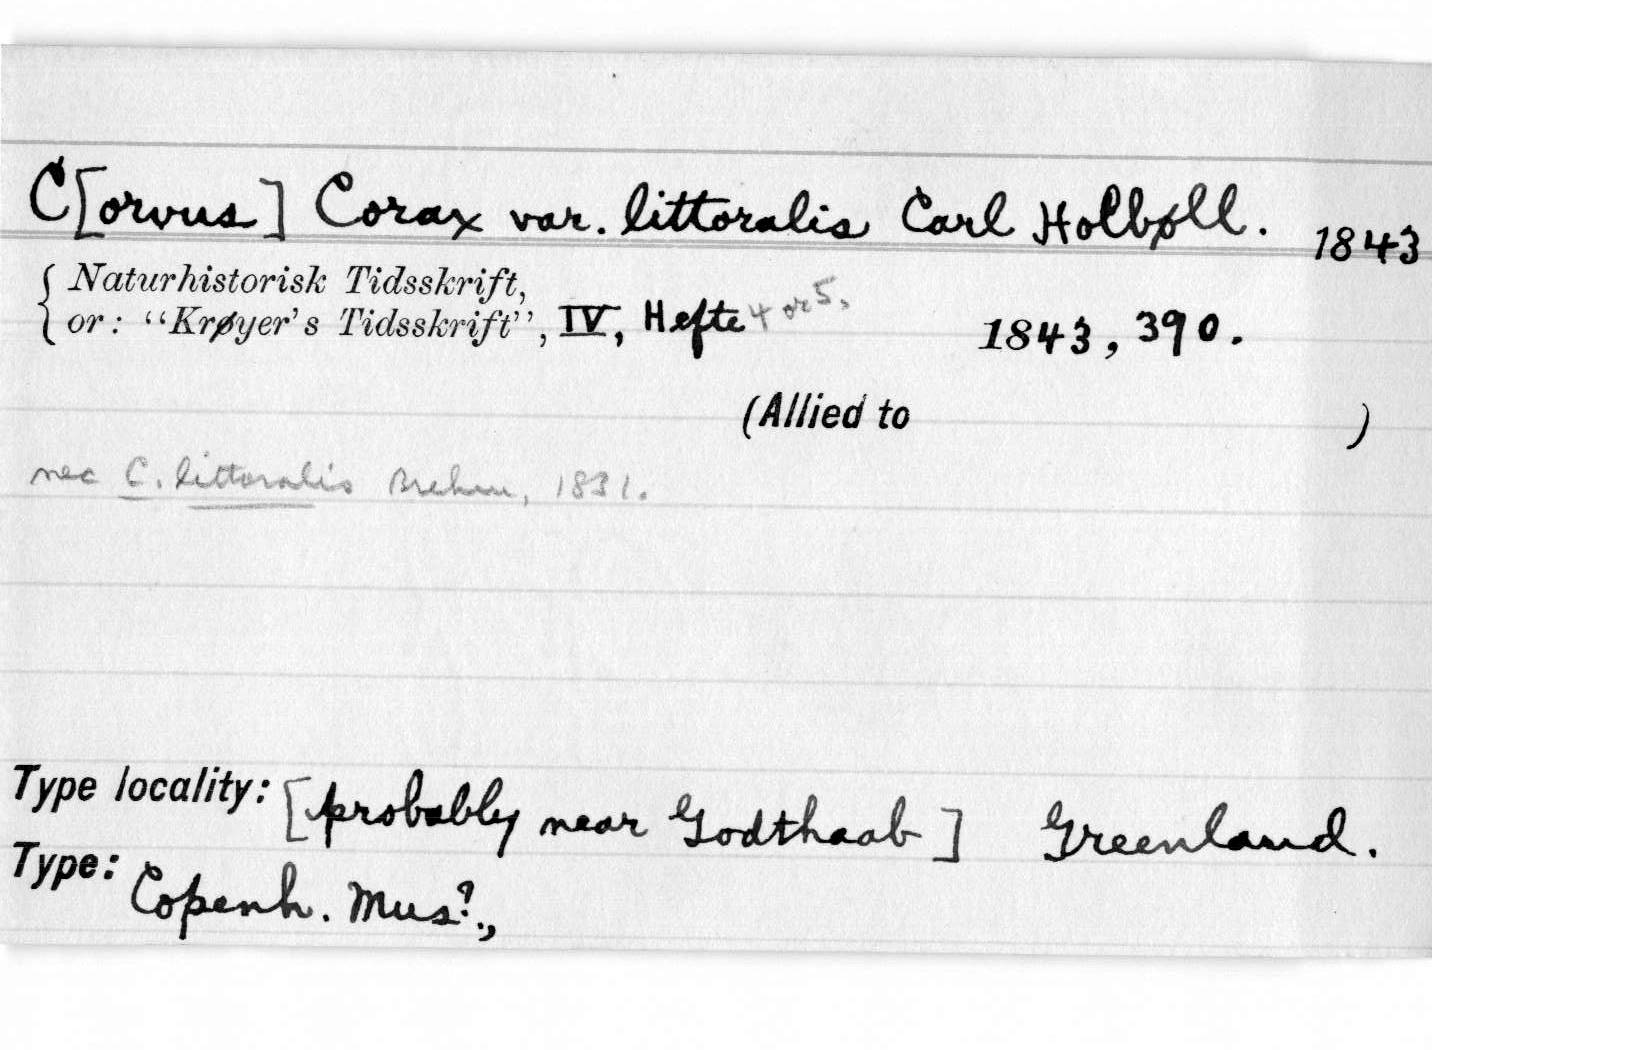 C[orvus] Corax var. littoralis Carl Holbøll. 1843
Naturhistorisk Tidsskrift,
or: "Krøyer's Tidsskrift", IV, Hefte 4 or 5. 1843, 390.
(Allied to )
nec C. littoralis Brehm, 1831.
Type locality: [probably near Godthaab] Greenland.
Type: Copenh. Mus?.,